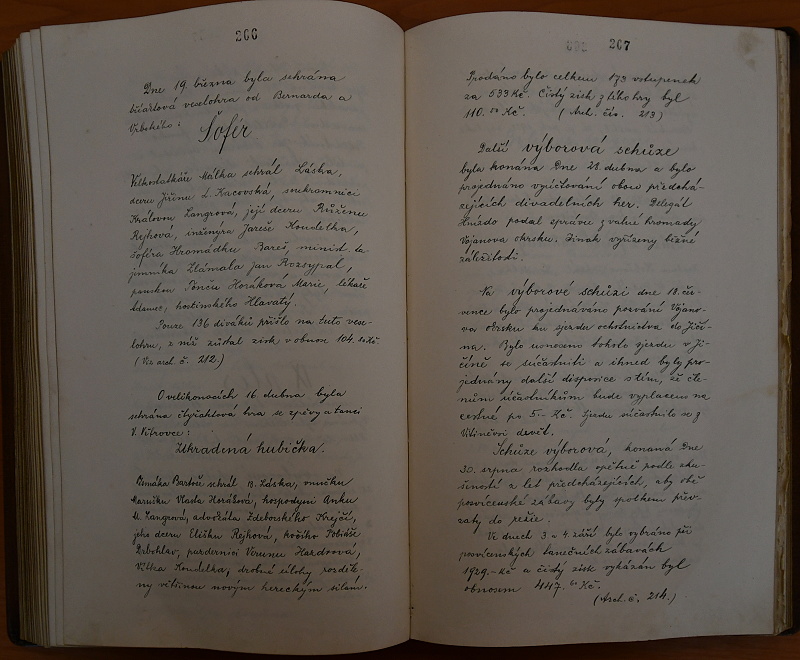 266
Dne 19. března byla sehrána
tříaktová veselohra od Bernarda a
Vrbského:
Šofér
Velkostatkáře Málka sehrál Láska,
dceru Jiřinu L. Kacovská, soukromnici
Královou Langrová, její dceru Růženu
Rejhová, inženýra Jareše Koudelka,
šoféra Hromádku Bareš, minist. ta-
jemníka Zlámala Jan Rozsypal,
pannskou Horáková Marie, lékaře
Adamec, hostinského Hlavatý.
Pouze 136 diváků přišlo na tuto vese-
lohru, z níž zůstal zisk v obnosu 104.20 Kč
(Viz arch. č. 212.)
O velikonocích 16 dubna byla
sehrána čtyřaktová hra se zpěvy a tanci
V. Větrovce:
Ukradená hubička.
Zemáka Bartoše sehrál B. Láska, vnučku
Marušku Vlasta Horáková, hospodyni Anku
M. Langrová, advokáta Zdeborského Krejčí,
jeho dceru Elišku Rejhová, kočího Tobiáše
Brbohlav, purdernici Verunu Hazdrová,
Vítka Koudelka, drobné úlohy rozděle-
ny většinou novým hereckým silám.
267
Prodáno bylo celkem 173 vstupenek
za 533 Kč. Čistý zisk z této hry byl
110.00 Kč. (Arch. čís. 213)
Další výborová schůze
byla konána Dne 28. dubna a bylo
projednáno vyúčtování obou předchá-
zejících divadelních her. Delegát
Hnízdo podal zprávu z valné hromady
Vojanova okrsku. Jinak vyřízeny běžné
záležitosti.
Na výborové schůzi dne 18. čer-
vence bylo projednáváno pozvání Vojano-
va okrsku ku sjezdu ochotnictva do Jičí-
na. Bylo usneseno tohoto sjezdu v Ji-
číně se súčastniti a ihned byly pro-
jednány další disposice s tím, že čle-
nům súčastníkům bude vyplaceno na
cestné po 5.- Kč. Sjezdu súčastnilo se z
Vitiněvsi devět.
Schůze výborová, konaná Dne
30. srpna rozhodla opětně podle zku-
šeností z let předcházejících, aby obě
posvícenské zábavy byly spolkem přev-
zaty do režie.
Ve dnech 3. a 4. září bylo vybráno při
posvícenských tanečních zábavách
1929.- Kč a čistý zisk vykázán byl
obnosem 447.60 Kč.
(Arch. č. 214.)